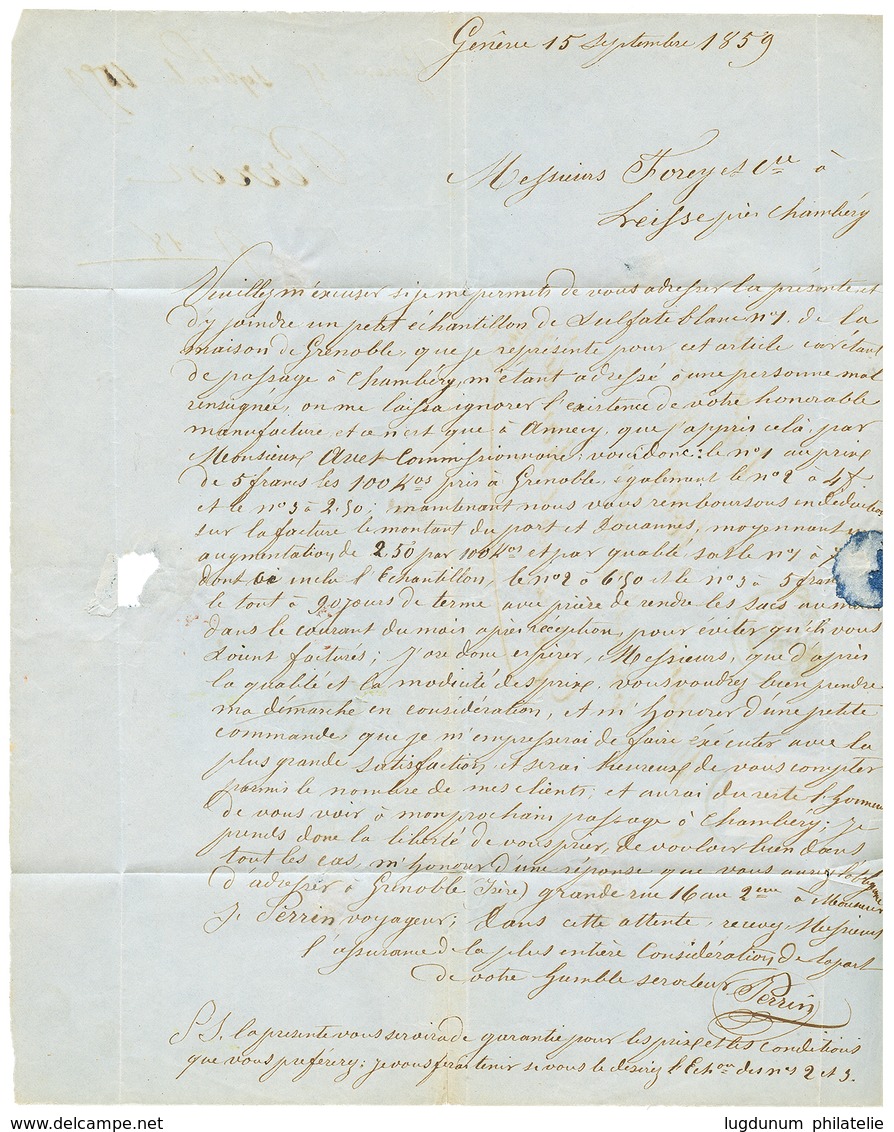 Genève 15 septembre 1859
Messieurs Forey et Cie à
Leisse près Chambéry
Veuillez m'excuser si je me permets de vous adresser la présente, et
d'y joindre un petit échantillon de Sulfate blanc n°1. de la
maison de Grenoble, que je représente pour cet article car étant
de passage à Chambéry, m'étant adressé à une personne mal
renseignée, on me laissa ignorer l'existence de votre honorable
manufacture et ce n'est que à Annecy, que j'appris celà, par
Monsieur Avet Commissionnaire; voici donc: le n°1 au prix
de 5 francs les 100 Kos pris à Grenoble, également le n°2 à 4f
et le n°3 à 2.50; maintenant nous vous remboursons en déduction
sur la facture le montant du port et Douannes, moyennant
augmentation de 2.50 par 100 Kos et par qualité, soit le n°1 à
dont ci inclu l'Echantillon, le n°2 à 6.50 et le n°3 à 5 francs
le tout à 90 jours de terme avec prière de rendre les sacs au
dans le courant du mois après réception, pour éviter qu'ils vous
soient facturés; J'ose donc espérer, Messieurs, que d'après
la qualité et la modicité des prix, vous voudrez bien prendre
ma démarche en considération, et m'honorer d'une petite
commande, que je m'empresserai de faire exécuter avec la
plus grande satisfaction, et serai heureux de vous compter
parmis le nombre de mes clients; et aurai du reste l'honneur
de vous voir à mon prochain passage à Chambéry; Je
prends donc la liberté de vous prier, de vouloir bien dans
tout les cas, m'honorer d'une réponse que vous aurez l'obligeance
d'adresser à Grenoble (Isère) grande rue 16 au 2eme à Monsieur
J. Perrin, voyageur; dans cette attente, recevez Messieurs
l'assurance de la plus entière Considération de la part
de votre humble serviteur Perrin
P.S. la présente vous servira de garantie pour les prix et les conditions
que vous préférez; je vous ferai tenir si vous le désirez l'Echon des nos 2 et 3.
lugdunum philatelie